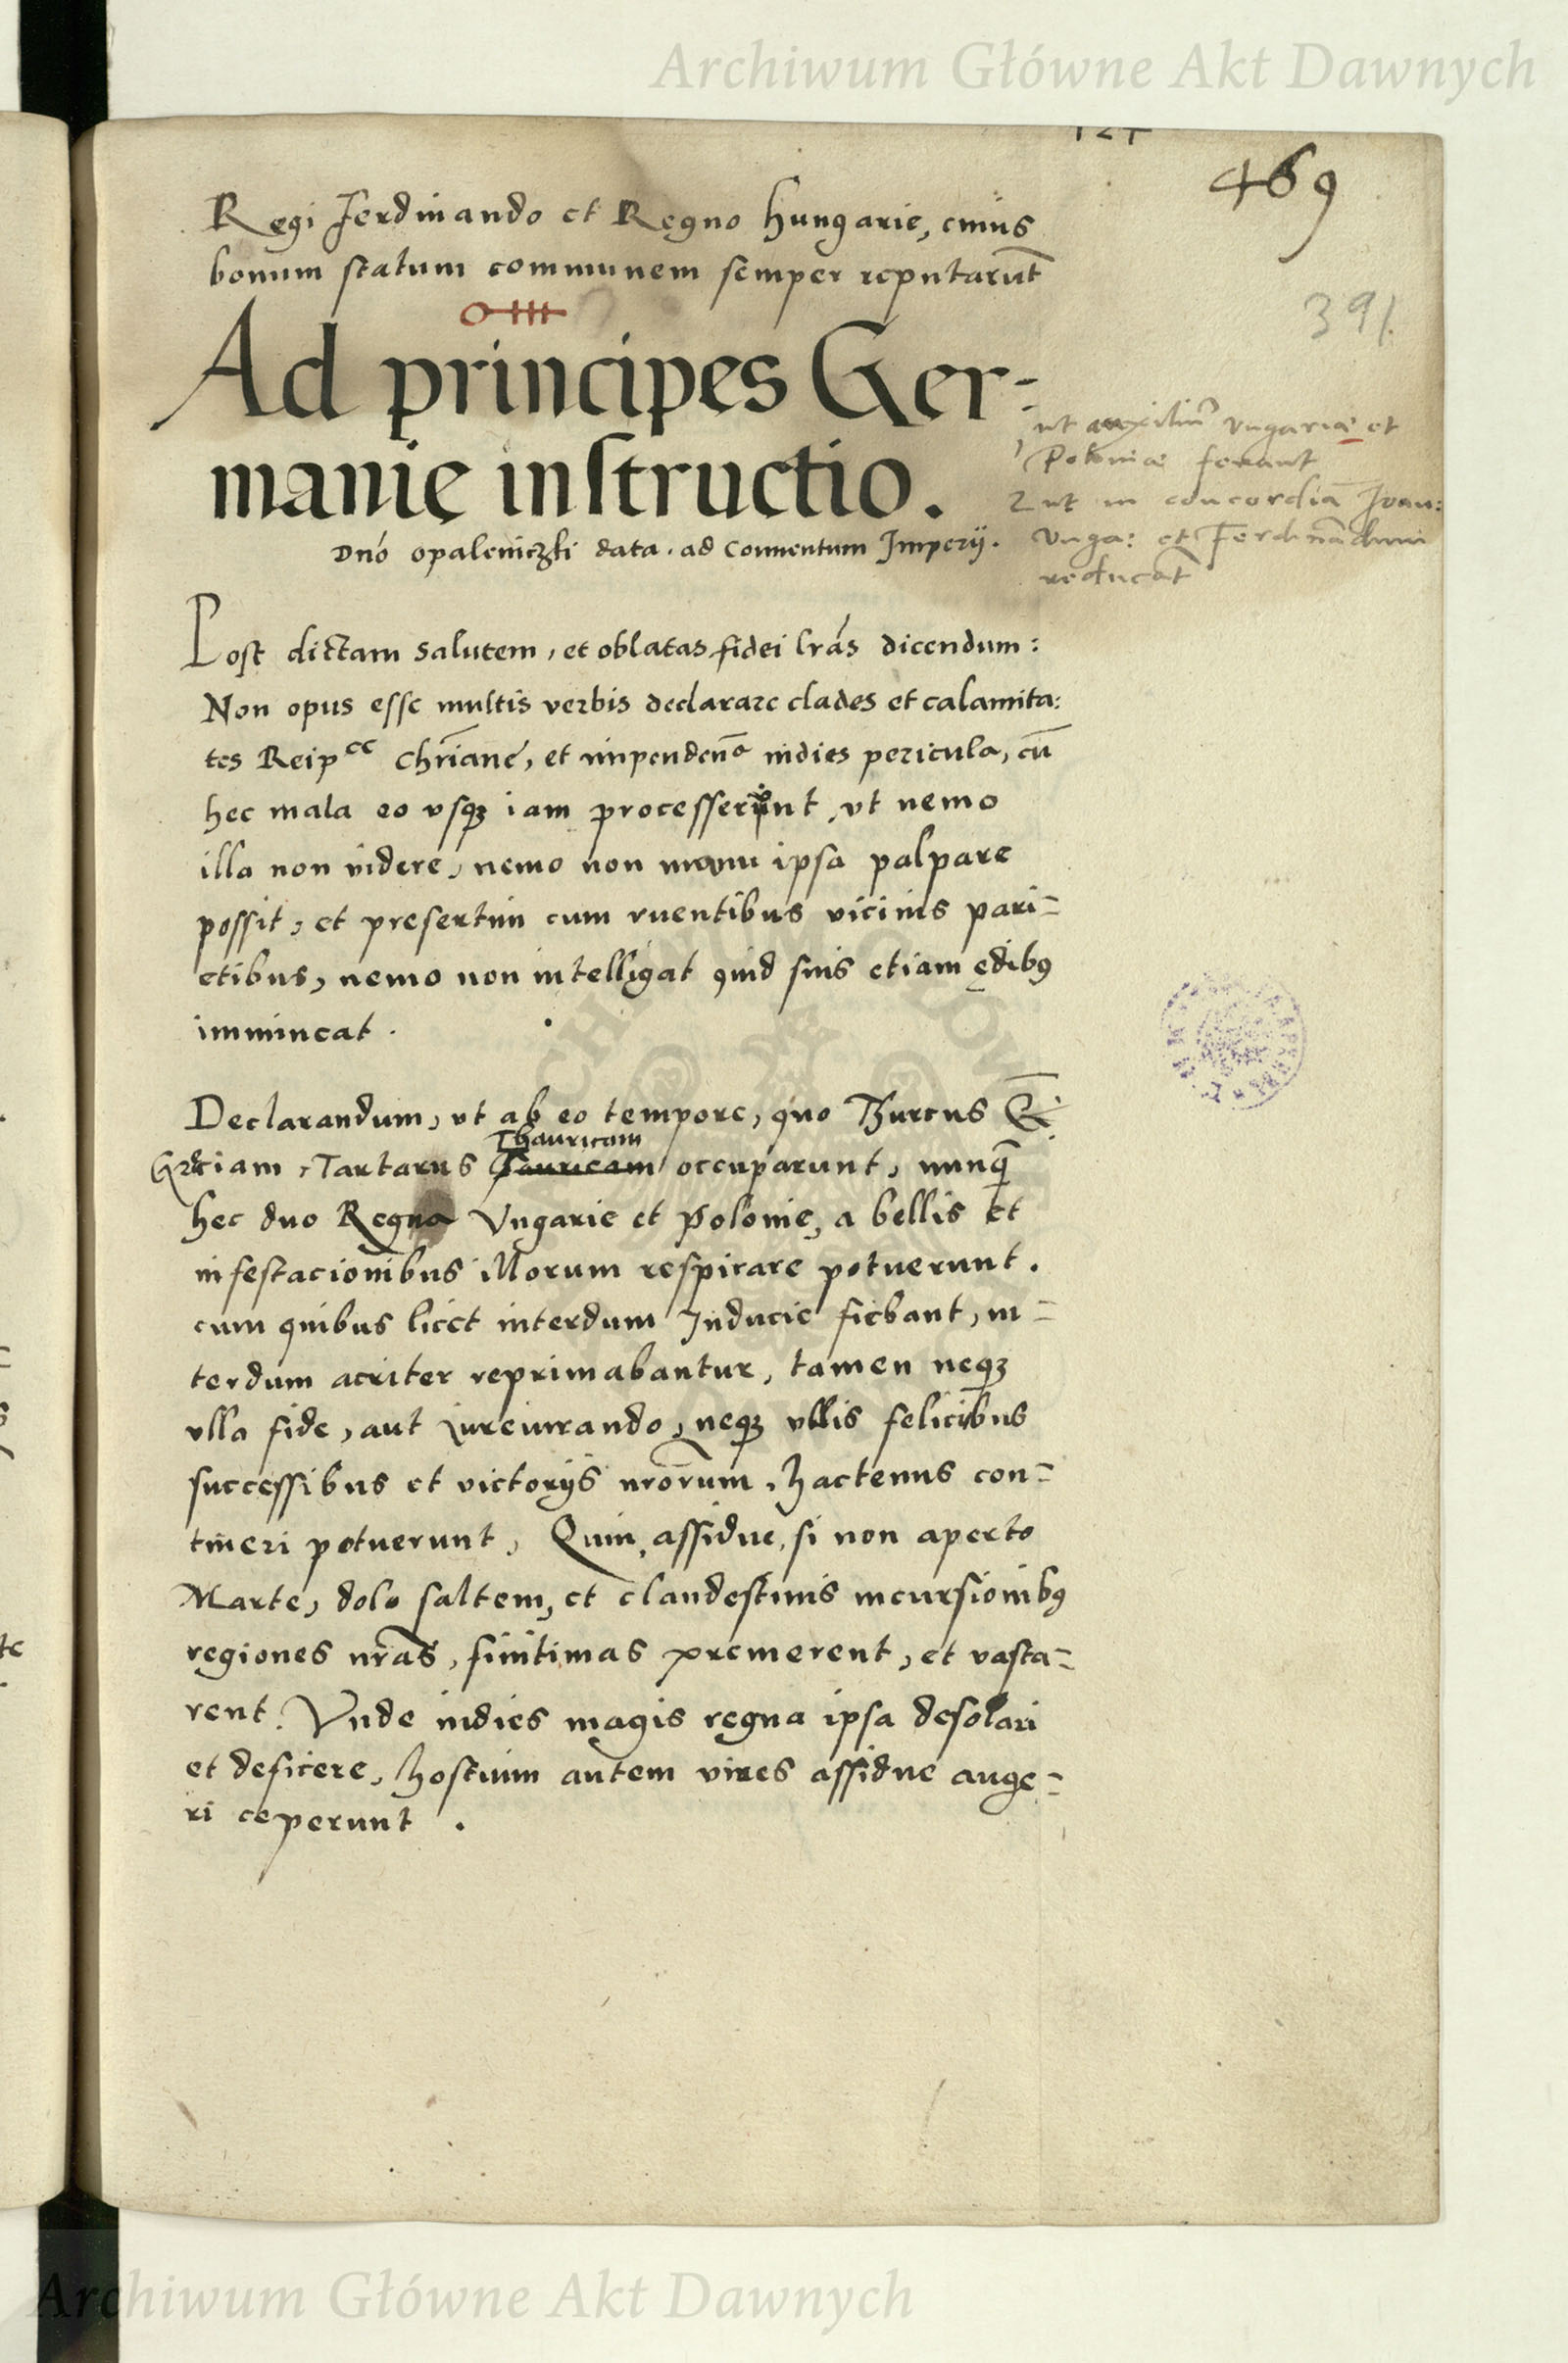 Archiwum Główne Akt Dawnych
469
Regi Ferdinando et Regno hungarie, cuius
bonum statum communem semper reputarūt
391.
Ad principes Ger-
manie instructio.
Dnō opaleniczki data. ad Conuentum Imperij.
ut auxiliū Vngariæ et
Poloniæ ferant
2 ut in concordiā Joan:
Vnga: et Ferdinādum
reducāt
Post dictam salutem, et oblatas fidei lrās dicendum:
Non opus esse multis verbis declarare clades et calamita:
tes Reipce chriane, et impendenа indies pericula, cū
hec mala eo vsqꝫ iam processerunt, vt nemo
illa non videre, nemo non manu ipsa palpare
possit, et presertim cum ruentibus vicinis pari=
etibus, nemo non intelligat quid suis etiam ędibꝰ
immineat.
Declarandum, vt ab eo tempore, quo Thurcus
Greciam, Tartarus Thauricam Tauricam occuparunt, nunq̄
hec duo Regna Vngarie et Polonie, a bellis et
infestacionibus illorum respirare potuerunt.
cum quibus licet interdum Inducie fiebant, in=
terdum acriter reprimabantur, tamen neqꝫ
vlla fide, aut iureiurando, neqꝫ vllis felicibus
successibus et victorijs nrōrum, hactenus con=
tineri potuerunt, Quin, assidue, si non aperto
Marte, dolo saltem, et clandestinis incursionibꝰ
regiones nrās, finitimas premerent, et vasta=
rent. Vnde indies magis regna ipsa desolari
et deficere, hostium autem vires assidue auge=
ri ceperunt.
Archiwum Główne Akt Dawnych